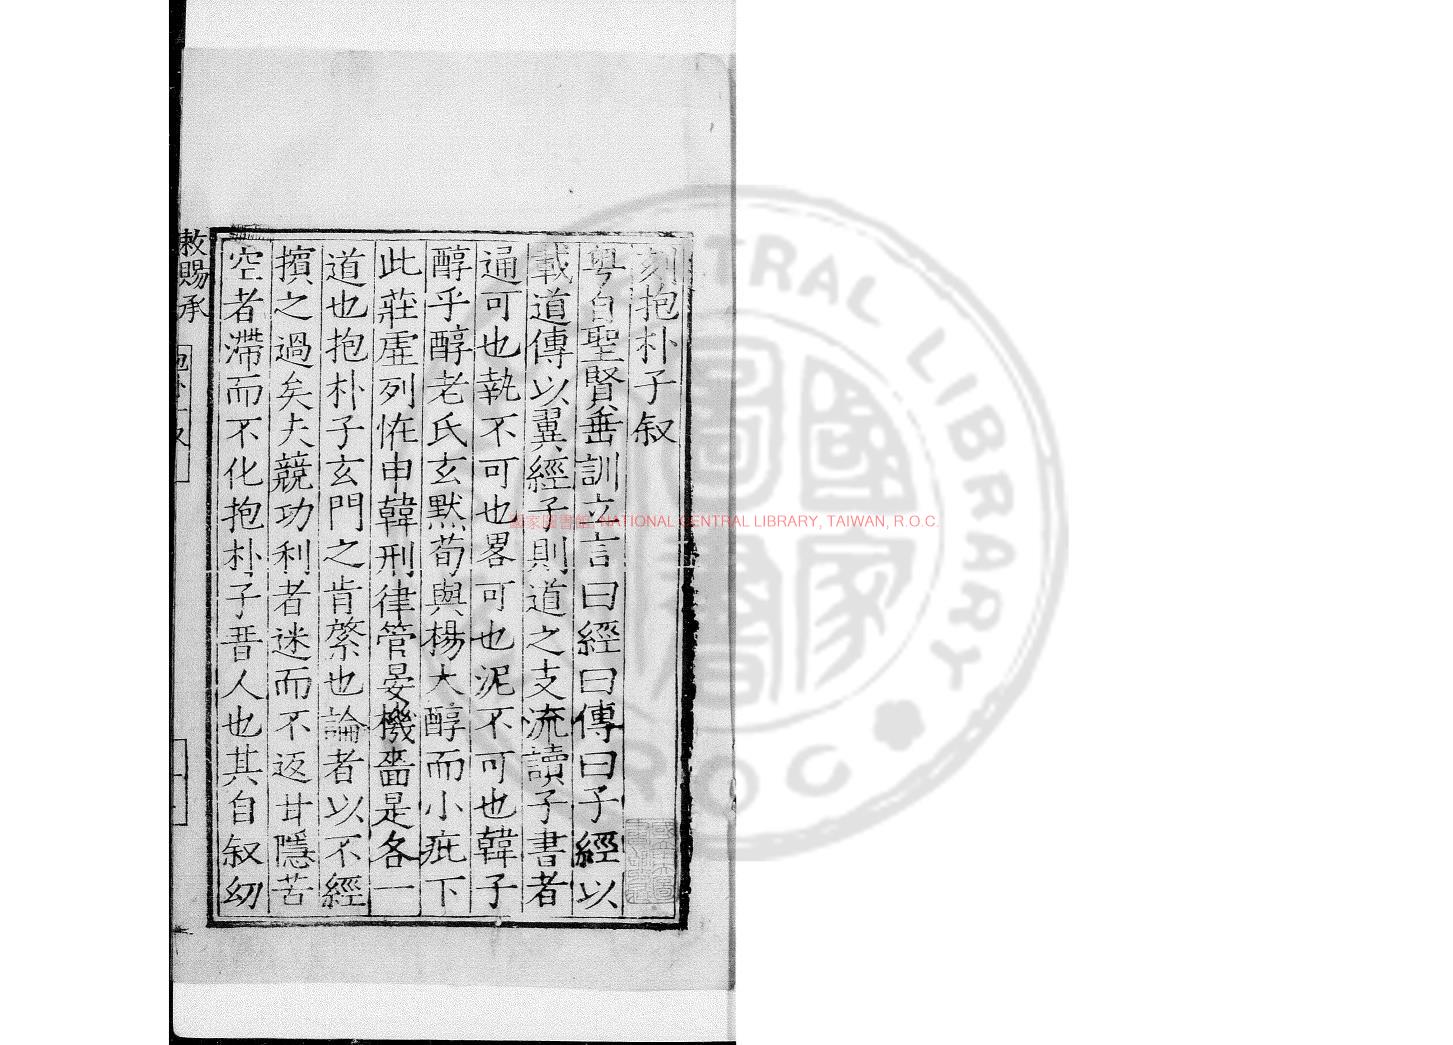 刻抱朴子叙
粤自聖賢垂訓立言曰經曰傳曰子經以
載道傳以翼經子則道之支流讀子書者
通可也執不可也畧可也泥不可也韓子
醇乎醇老氏玄默荀與楊大醇而小疵下
此莊虛列恠申韓刑律管晏機嗇是各一
道也抱朴子玄門之肯綮也論者以不經
擯之過矣夫競功利者迷而不返甘隱苦
空者滯而不化抱朴子晋人也其自叙幼
敕賜承
國家圖書館, NATIONAL CENTRAL LIBRARY, TAIWAN, R.O.C.
CENTRAL LIBRARY
國家圖書
R O C